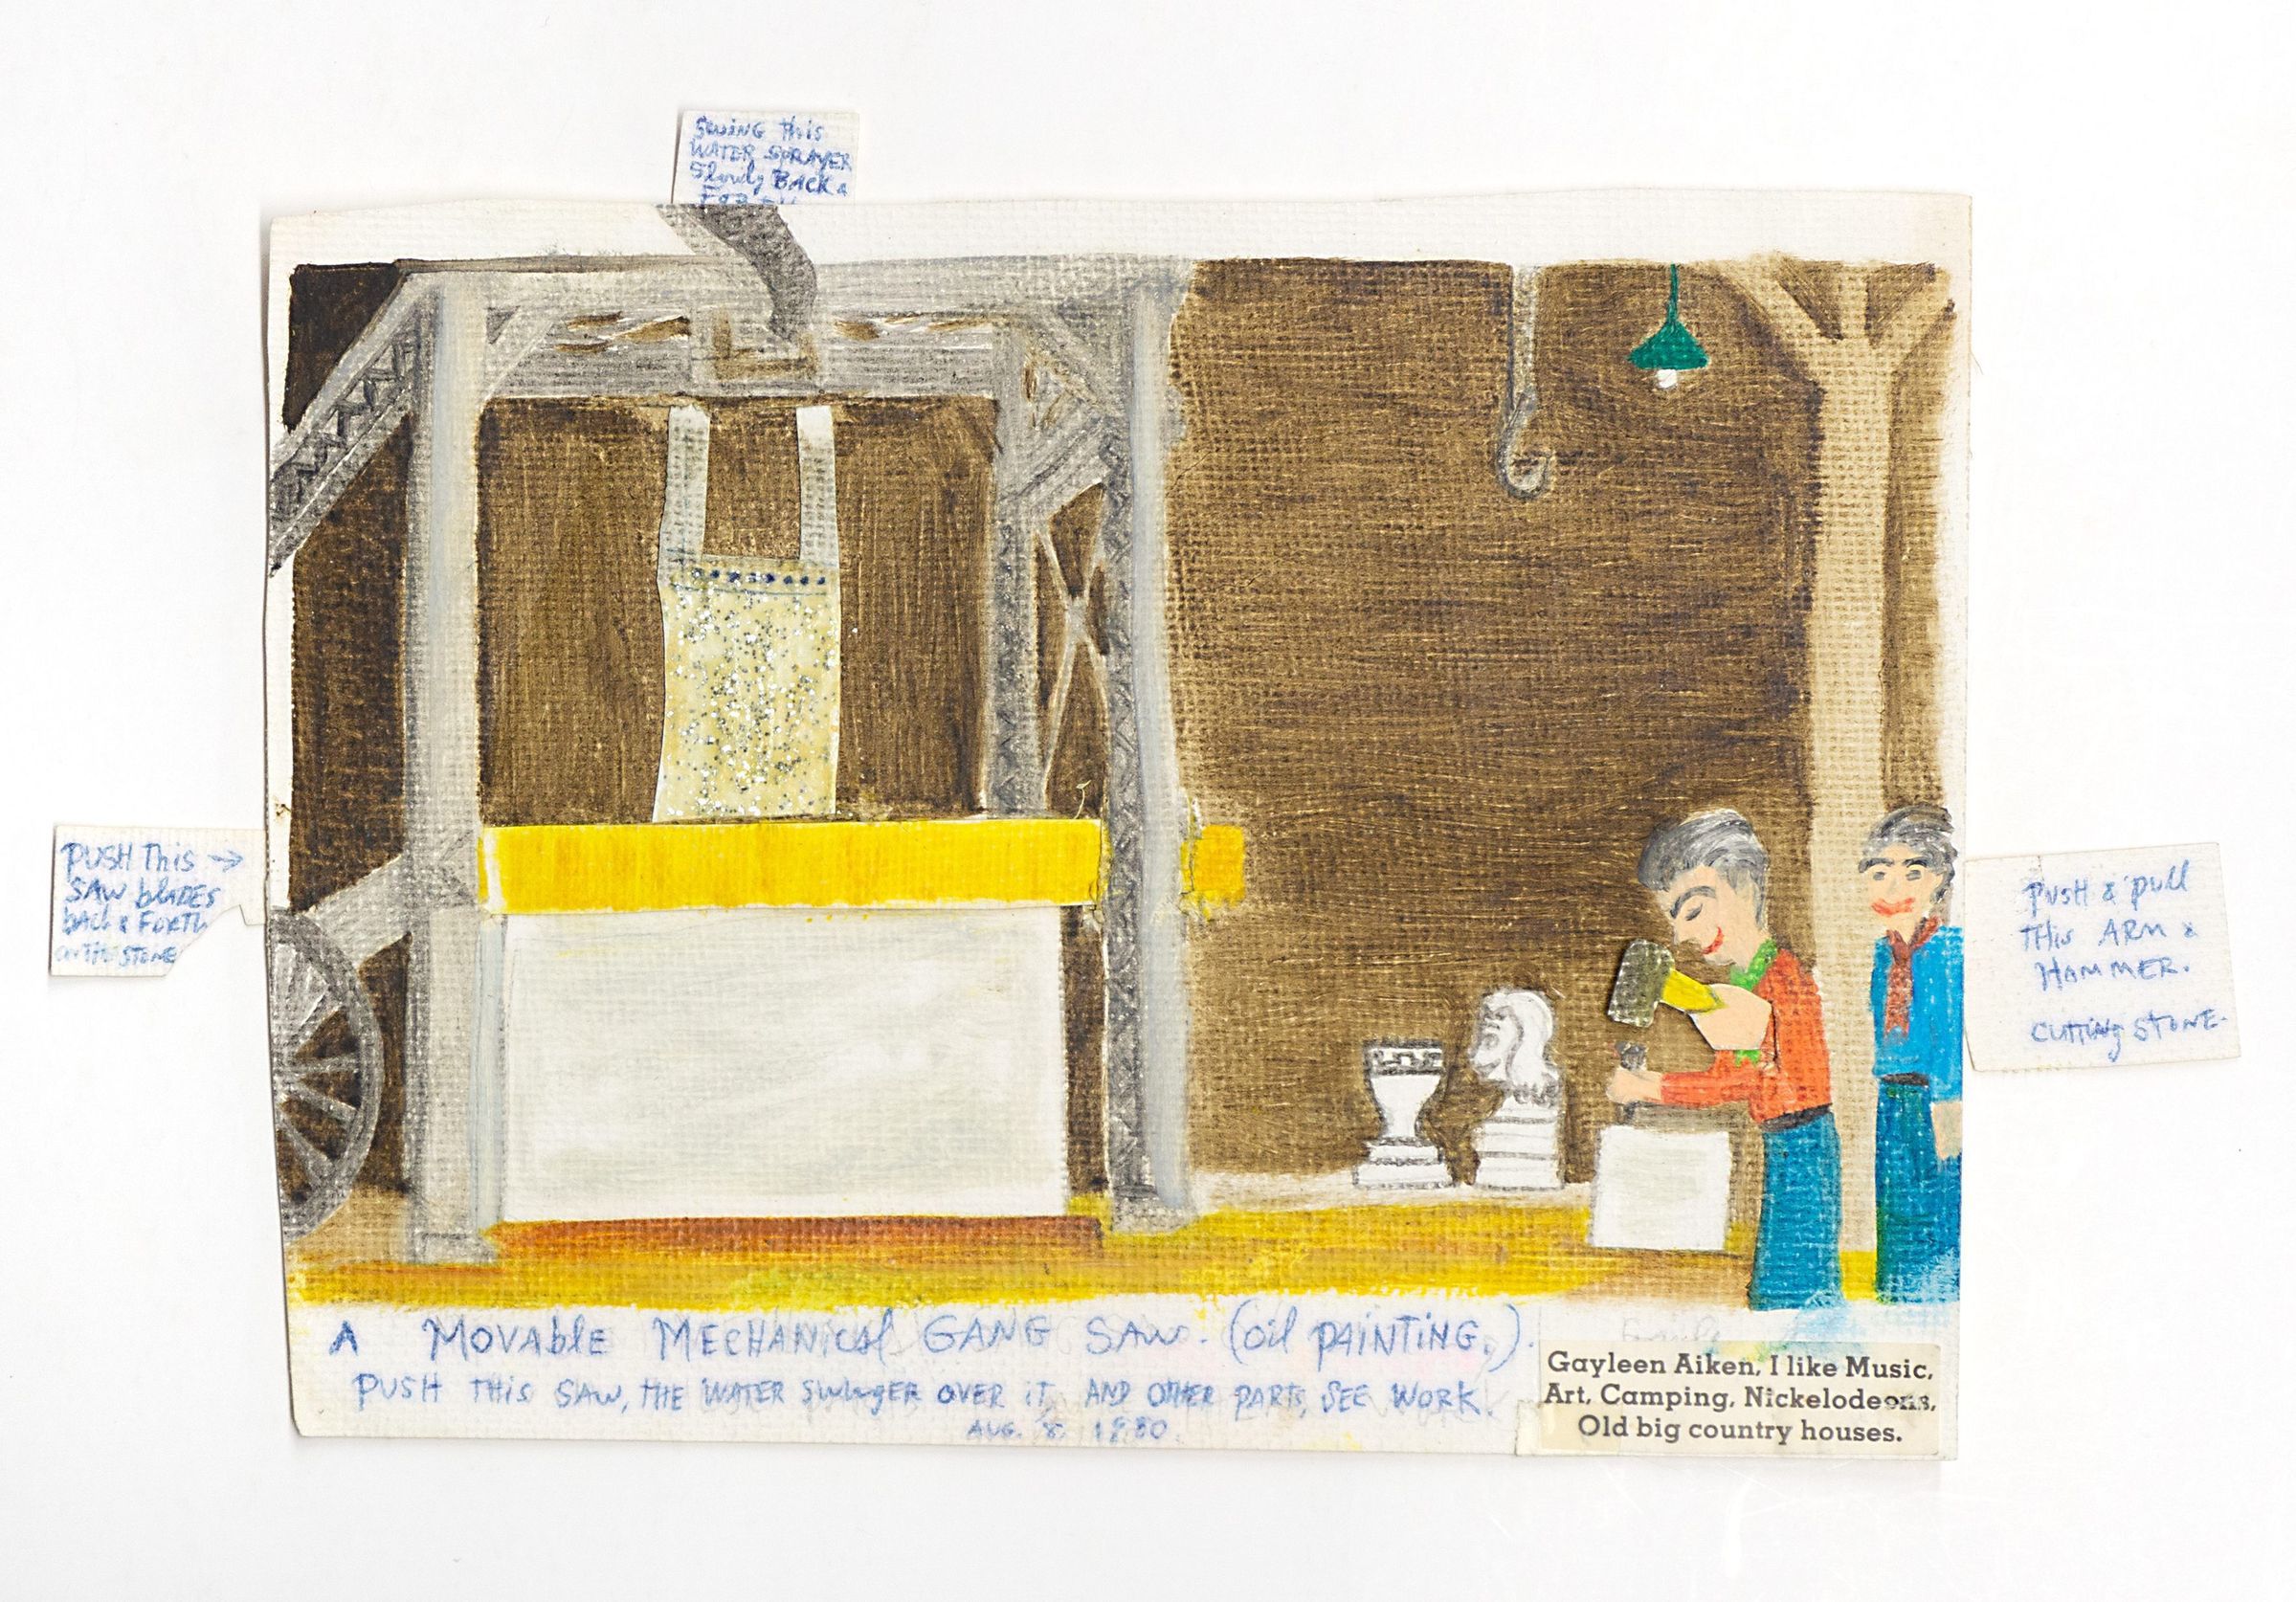 SWING This
WATER SPRAYER
Slowly BACK &
PUSH This →
SAW blADES
bACk & FORTH
ON THE STONE
PUSH & PUll
THis ARM &
HAMMER.
CUTTiNg STONE.
A MOVAblE MECHANiCAl GANG SAW. (Oil PAiNTiNG,).
PUSH THiS SAW, THE WATER SWiNgER OVER iT, AND OTHER PARTS, SEE WORK.
AUG. 8, 1980.
Gayleen Aiken, I like Music,
Art, Camping, Nickelodeons,
Old big country houses.